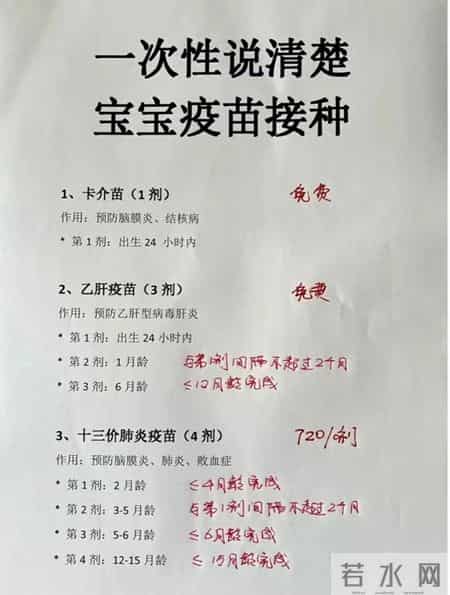 一次性说清楚
宝宝疫苗接种
1、卡介苗（1 剂） 免费
作用：预防脑膜炎、结核病
* 第 1 剂：出生 24 小时内
2、乙肝疫苗（3 剂） 免费
作用：预防乙肝型病毒肝炎
* 第 1 剂：出生 24 小时内
* 第 2 剂：1 月龄 与第1剂间隔不超过2个月
* 第 3 剂：6 月龄 ≤12月龄完成
3、十三价肺炎疫苗（4 剂） 720/剂
作用：预防脑膜炎、肺炎、败血症
* 第 1 剂：2 月龄 ≤4月龄完成
* 第 2 剂：3-5 月龄 与第1剂间隔不超过2个月
* 第 3 剂：5-6 月龄 ≤6月龄完成
* 第 4 剂：12-15 月龄 ≤15月龄完成
若水网